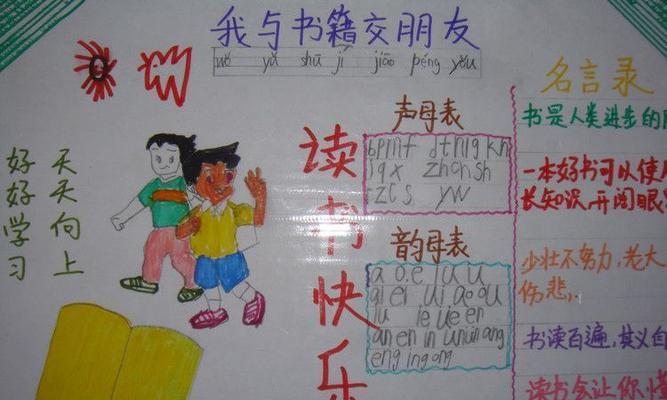 我与书籍交朋友
wǒ yǔ shū jí jiāo péng yǒu
好好学习
天天向上
读书快乐
声母表
bpmf dtnlgkh
jqx zhchsh
rzcs yw
韵母表
a o e i u ü
ai ei ui ao ou
iu ie üe er
an en in un ün ang
eng ing ong
名言录
书是人类进步的
一本好书可以使
长知识,开阔眼
少壮不努力,老大
伤悲,
书读百遍,其义自
读书会让你